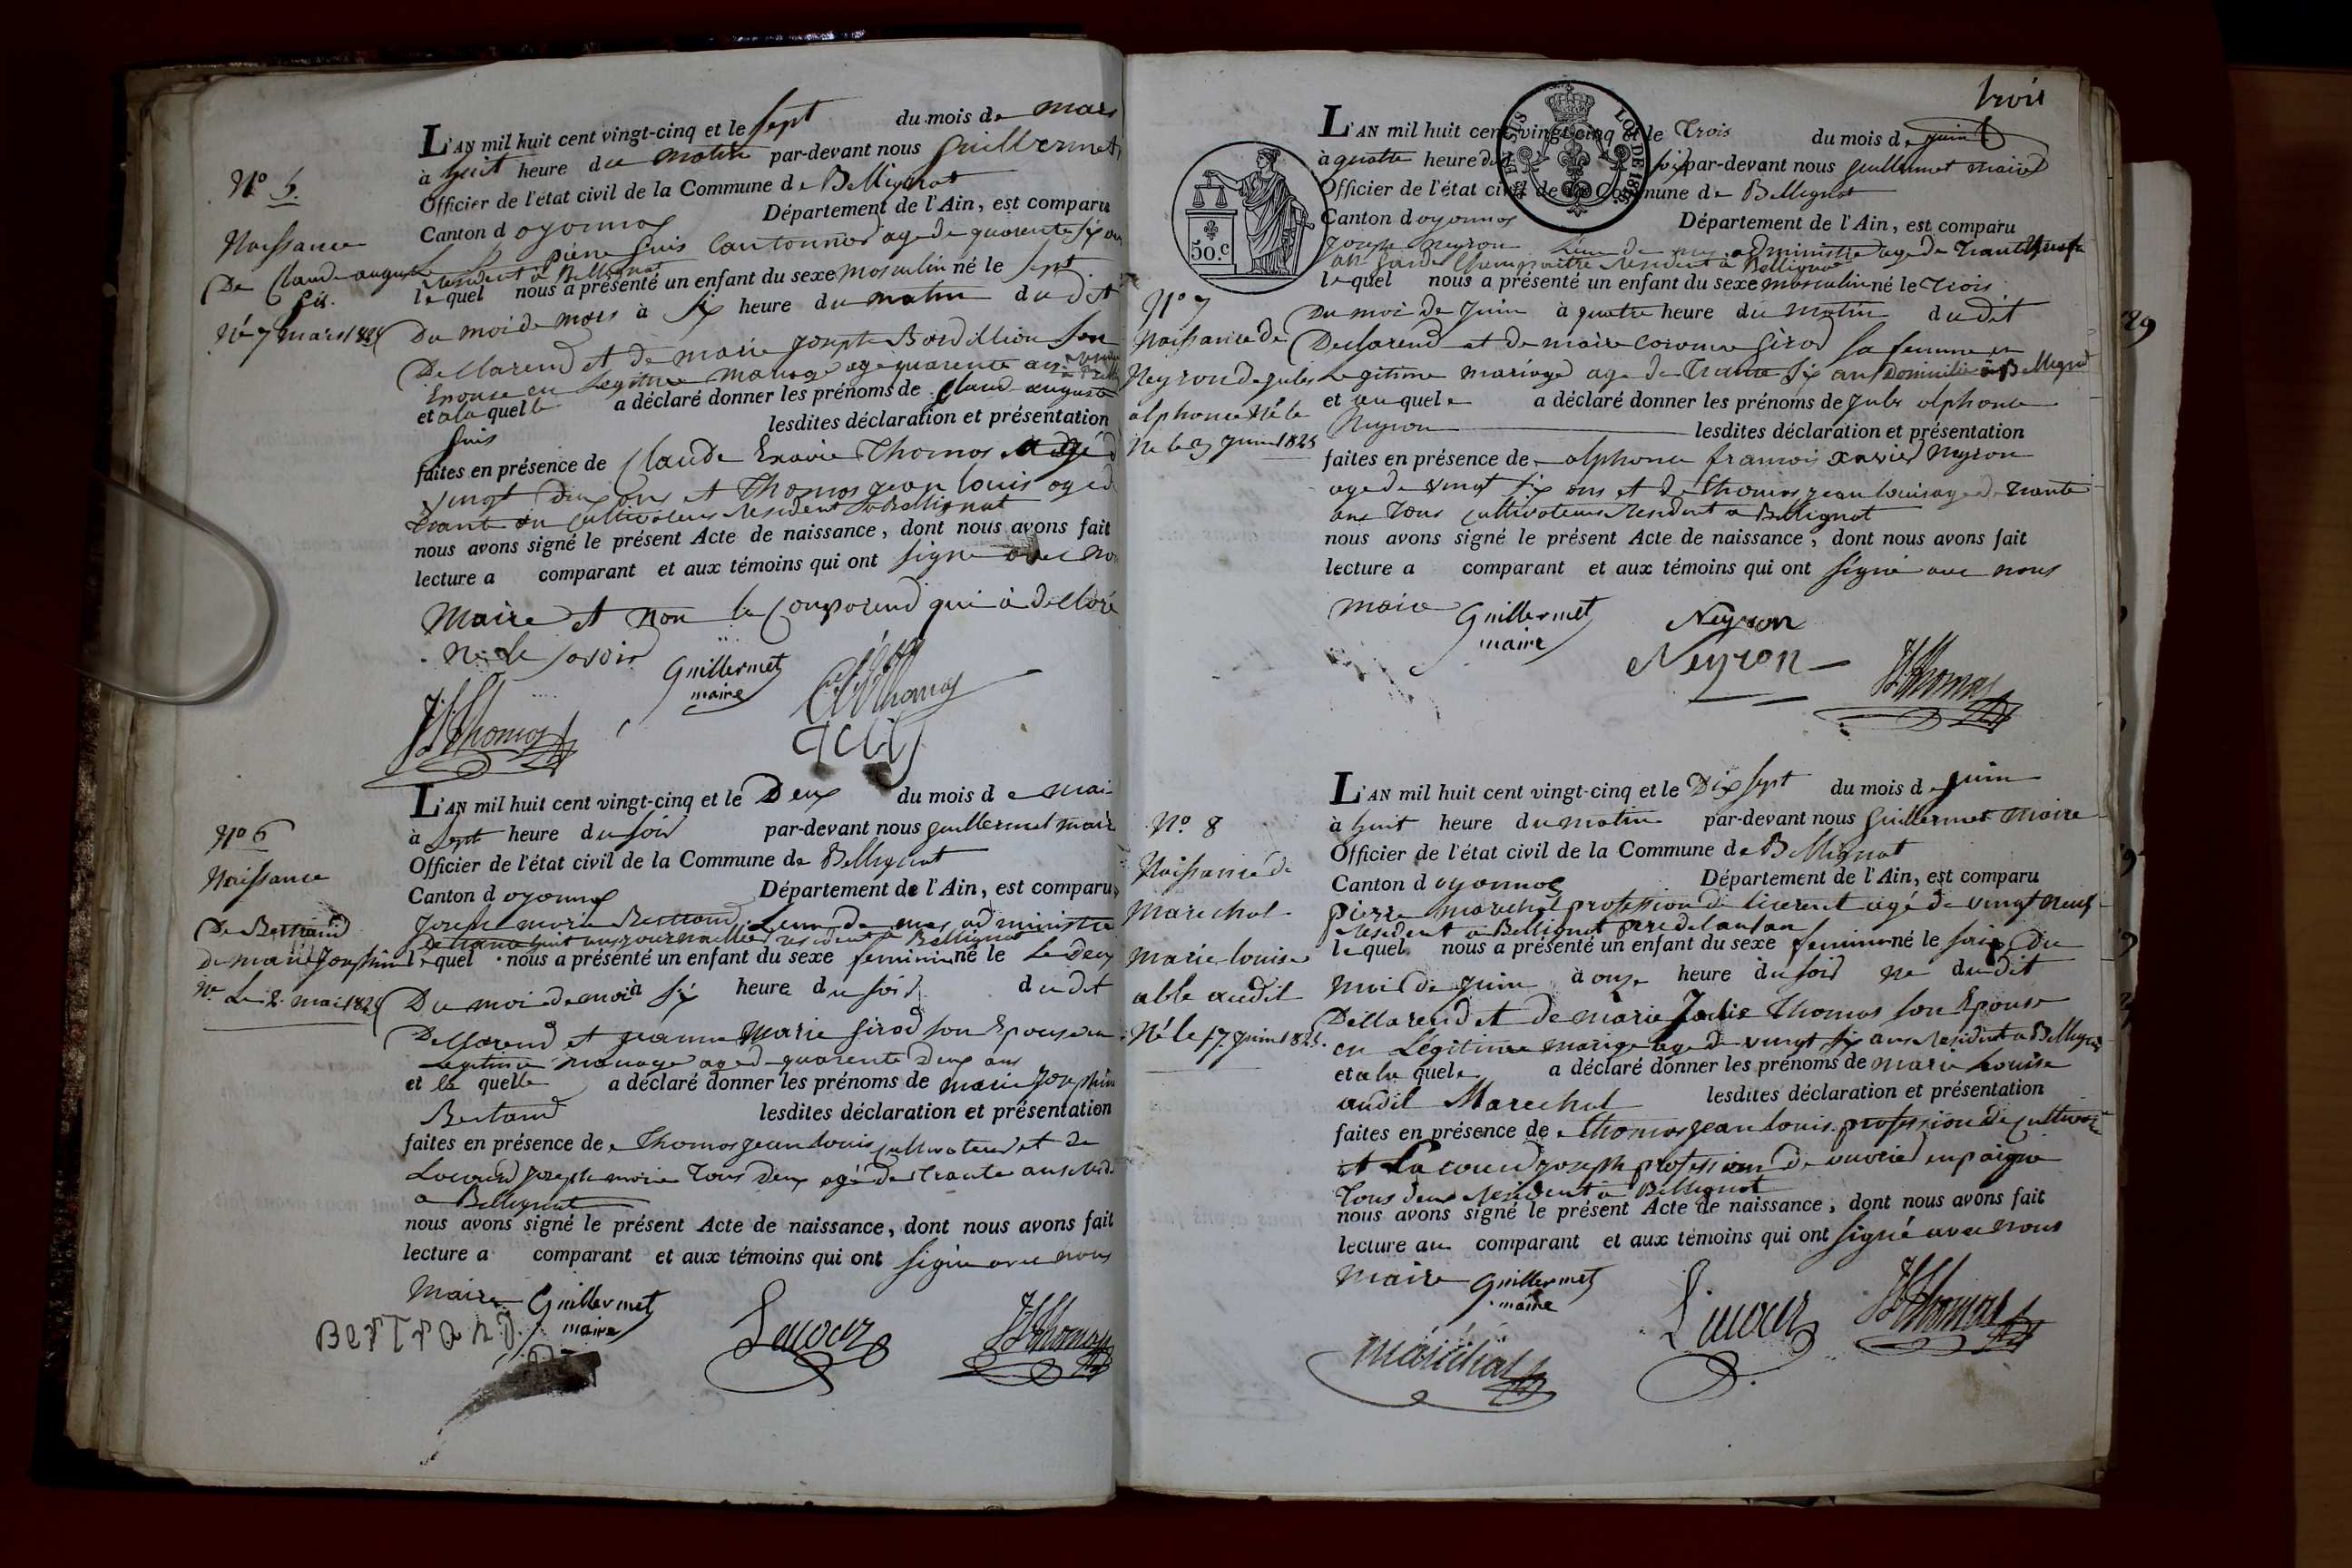 L'AN mil huit cent vingt-cinq et le sept du mois de mars
à huit heure du matin par-devant nous Guillermet
Officier de l'état civil de la Commune de Bellignat
Canton d oyonnax Département de l'Ain, est comparu
pierre Cantonnier age de quarente six
resident a Bellignat
lequel nous a présenté un enfant du sexe masculin né le sept
Du moi de mars à six heure du matin du dit
Declarend et de marie Joseph Bondillion son
Epouse en Legitime mariage age quarente ans
et a la quelle a déclaré donner les prénoms de Claude auguste
lesdites déclaration et présentation
faites en présence de Claude Exavie Thomas agé d
vingt deux ans et Thomas jean louis age d
trante an cultivateurs resident a Bellignat
nous avons signé le présent Acte de naissance, dont nous avons fait
lecture a comparant et aux témoins qui ont signe avec no
Maire et non le Comparend qui à declaré
ne le savoir
Guillermet
maire
Thomas
JLThomas
N° 5.
Naissance
De Claude auguste
Né 7 mars 1825
L'AN mil huit cent vingt-cinq et le Deux du mois d e mai
à sept heure du soir par-devant nous guillermet maire
Officier de l'état civil de la Commune de Bellignat
Canton d oyonnax Département de l'Ain, est comparu
Joseph marie Bertrand L'un de mes administre
de trante huit ans journallier resident a Bellignat
lequel nous a présenté un enfant du sexe feminin né le Le Deux
Du moi de mai à six heure du soir du dit
Declarend et jeanne Marie girod son Epouse en
Legitime mariage aged quarente Deux ans
et la quelle a déclaré donner les prénoms de marie Josephine
Bertand lesdites déclaration et présentation
faites en présence de Thomas jean louis cultivateur et de
Lacourd joseph marie Tous Deux agé de trante ans
a Bellignat
nous avons signé le présent Acte de naissance, dont nous avons fait
lecture a comparant et aux témoins qui ont signé avec nous
Maire
Guillermet
maire
BerTrand
Lacour
JLThomas
N° 6
Naissance
De Bertrand
De marie Josephine
Né Le 2 mai 1825
trois
L'AN mil huit cent vingt-cinq et le Trois du mois de juin
à quatre heure du soir par-devant nous guillermet maire
Officier de l'état civil de la Commune de Bellignat
Canton d oyonnax Département de l'Ain, est comparu
Joseph Neyron L'un de mes administre age de Trante neuf
ans garde Champaitre resident a Bellignat
lequel nous a présenté un enfant du sexe masculin né le Trois
Du moi de Juin à quatre heure du matin du dit
Declarend et de marie Girod sa femme en
Legitime mariage age de Trante six ans Domicilié à Bellignat
et au quel e a déclaré donner les prénoms de Jules alphonce
Neyron lesdites déclaration et présentation
faites en présence de alphonce francois xavier Neyron
age de vingt six ans et de thomas jean louis age de trante
ans Tous cultivateurs resident a Bellignat
nous avons signé le présent Acte de naissance, dont nous avons fait
lecture a comparant et aux témoins qui ont signé avec nous
maire
Guillermet
maire
Neyron
Neyron
JLThomas
50.C
LOI DE 18
N° 7
Naissance de
Neyron de jules
alphonce Né le
Né le 3 Juin 1825
L'AN mil huit cent vingt-cinq et le Dix sept du mois d e juin
à huit heure du matin par-devant nous Guillermet maire
Officier de l'état civil de la Commune de Bellignat
Canton d oyonnax Département de l'Ain, est comparu
pierre Marechal profession de agé de vingt neuf
resident a Bellignat pere de lanfan
lequel nous a présenté un enfant du sexe feminin né le Du
moi de Juin à onze heure du soir ne du dit
Declarend et de marie Julie Thomas son Epouse
en Légitime marige age de vingt six ans resident a Bellignat
et a la quele a déclaré donner les prénoms de marie Louise
audil Marechal lesdites déclaration et présentation
faites en présence de thomas jean louis profession de cultivate
et Lacourd joseph profession de ouvrier en paigne
Tous deux resident a Bellignat
nous avons signé le présent Acte de naissance, dont nous avons fait
lecture au comparant et aux témoins qui ont signé avec nous
maire
Guillermet
maire
Lacour
JLThomas
maréchal
N° 8
Naissance de
Marechal
Marie louise
audil
Né le 17 Juin 1825.